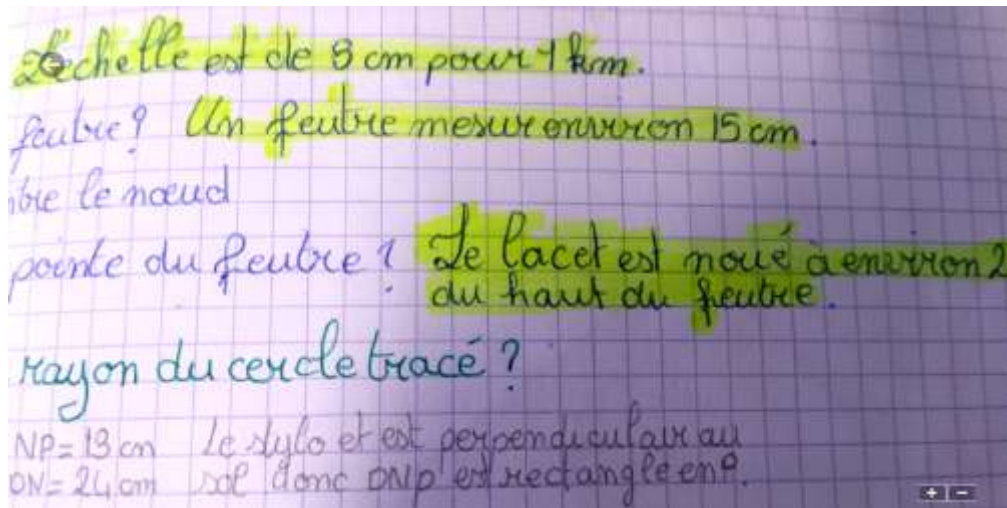 L'échelle est de 8 cm pour 1 km.
feutre ? Un feutre mesur environ 15 cm.
le nœud
pointe du feutre ? Le lacet est noué à environ 2
du haut du feutre.
rayon du cercle tracé ?
NP = 13 cm Le stylo et est perpendiculair au
ON = 24 cm sol donc ONP est rectangle en P.